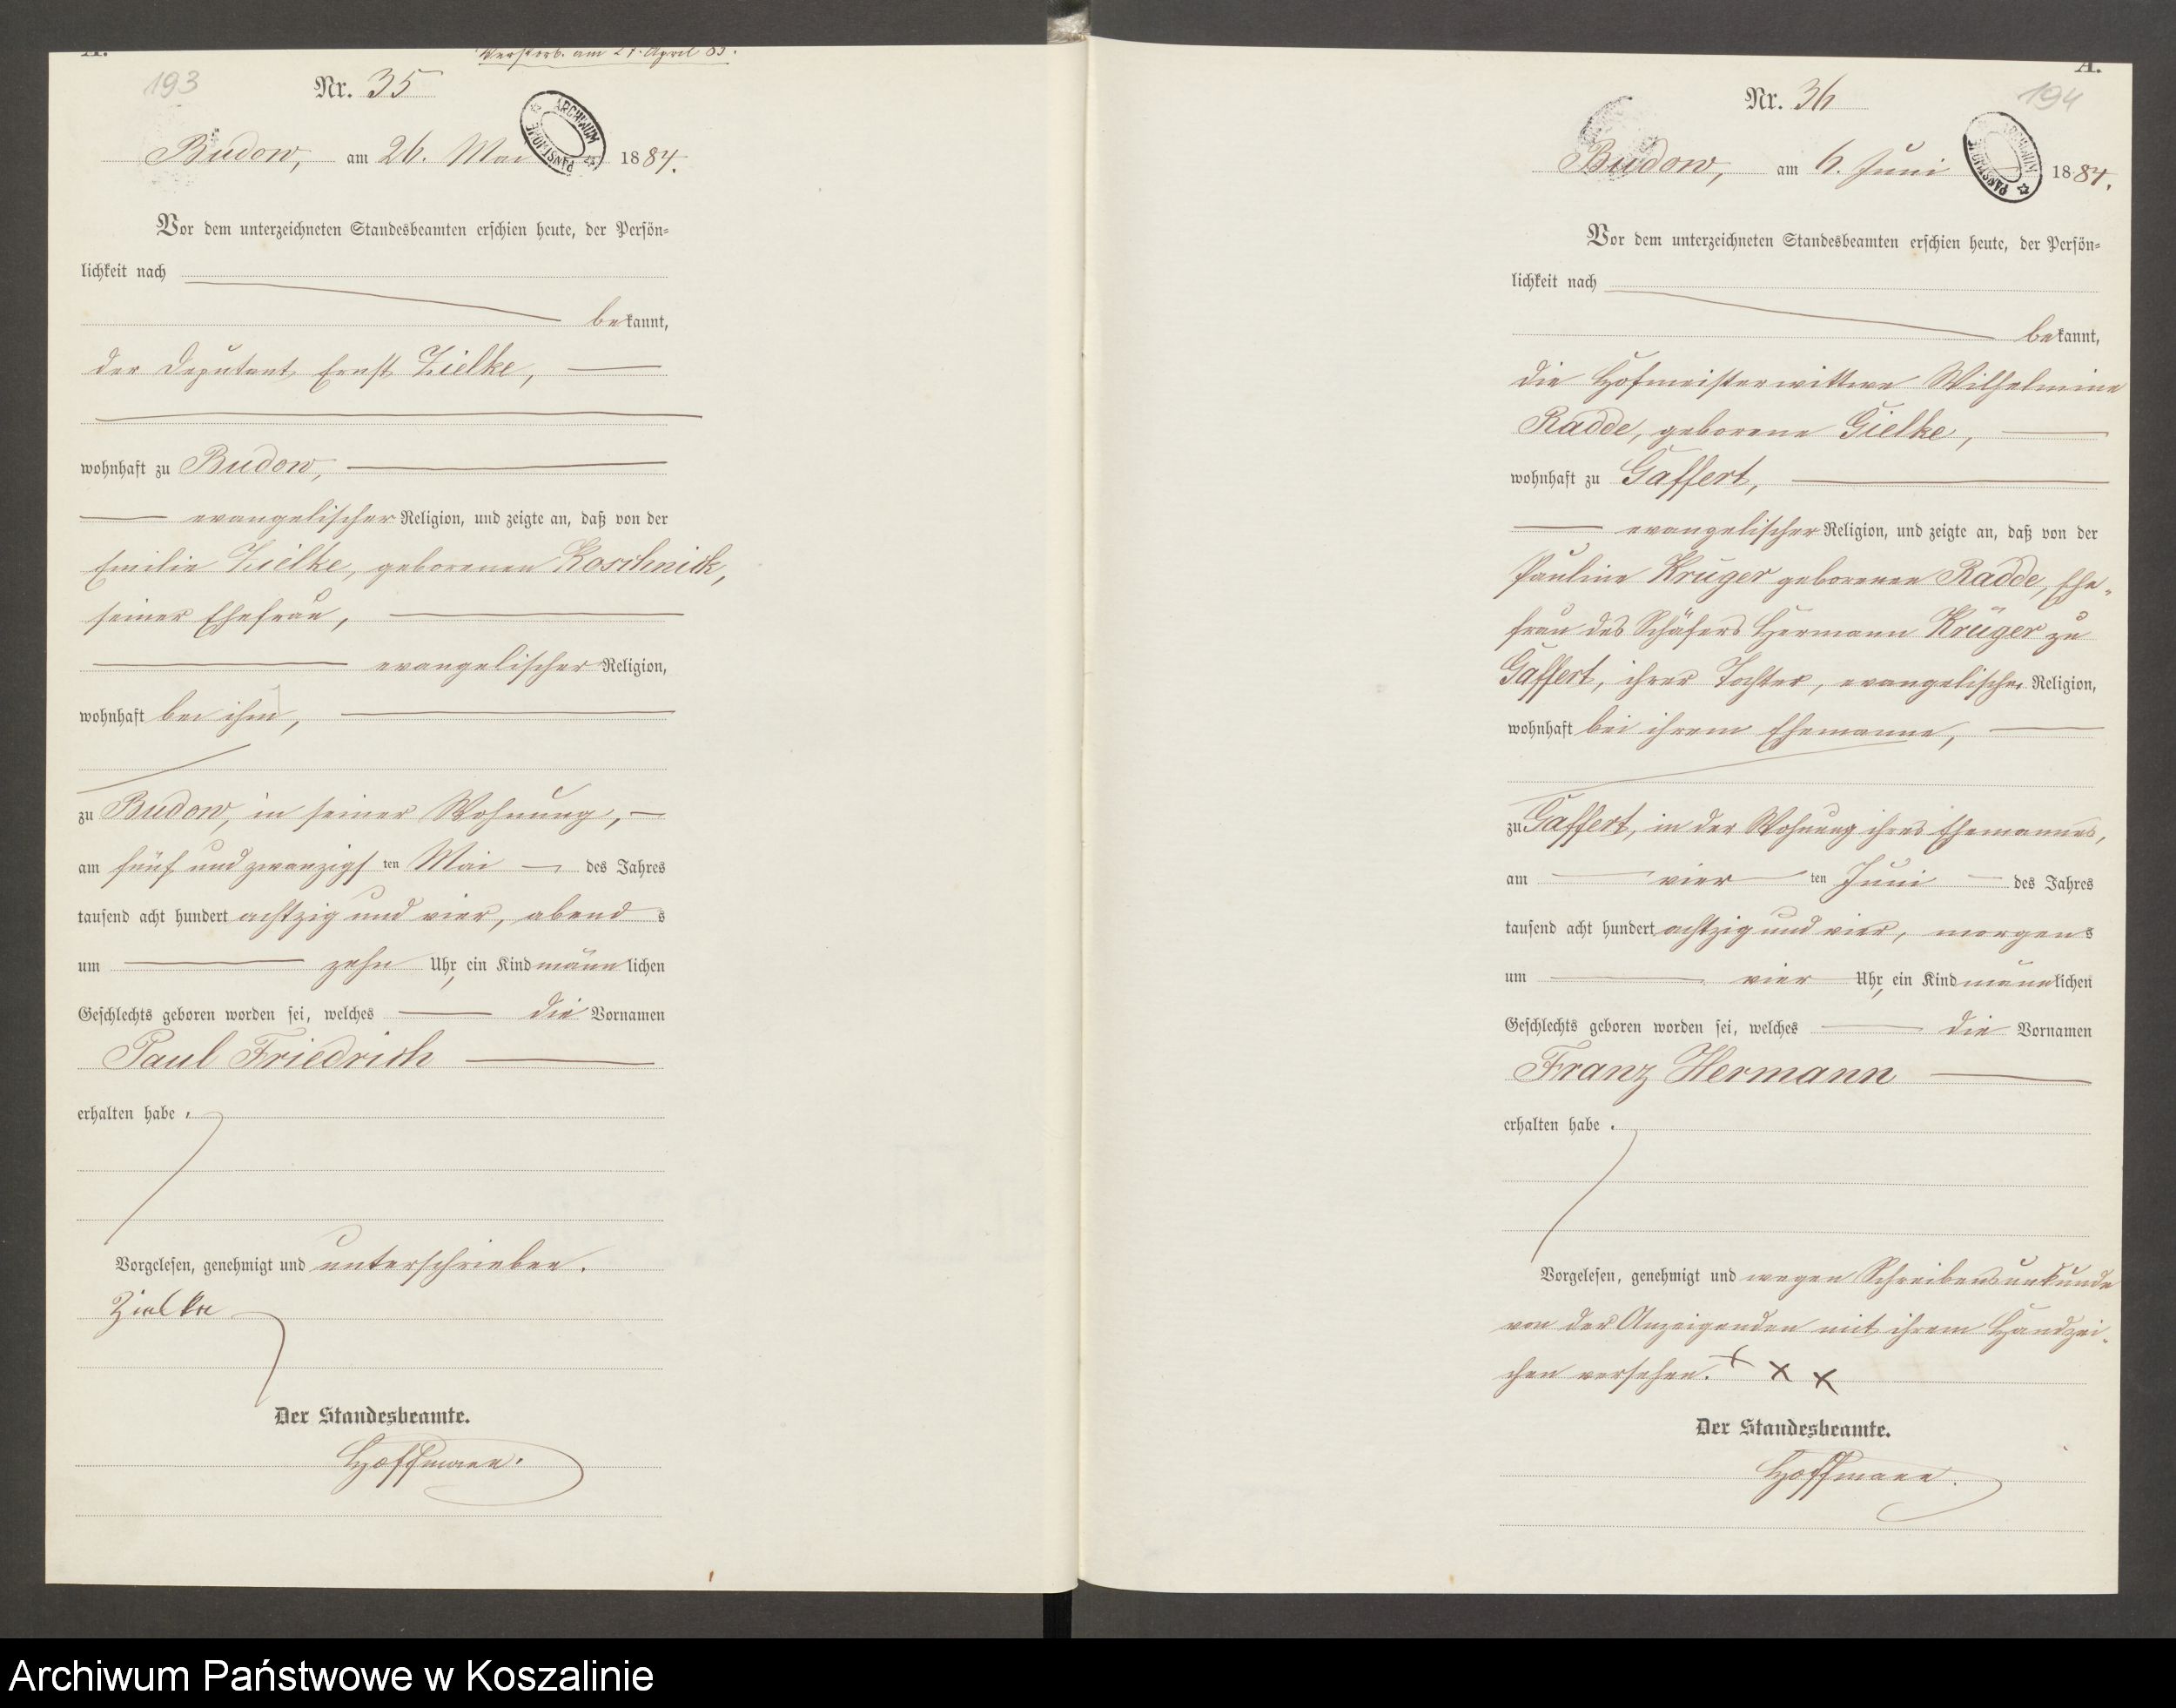 A.
Verstorb. am 21. April 85.
193
Nr. 35
ARCHIWUM PAŃSTWOWE
Budow, am 26. Mai 1884.
Vor dem unterzeichneten Standesbeamten erschien heute, der Persön-
lichkeit nach
bekannt,
der Deputant Ernst Zielke,
wohnhaft zu Budow,
evangelischer Religion, und zeigte an, daß von der
Emilie Zielke, geborenen Koschnick,
seiner Ehefrau,
evangelischer Religion,
wohnhaft bei ihm,
zu Budow, in seiner Wohnung,
am fünf und zwanzigsten Mai des Jahres
tausend acht hundert achtzig und vier, abends
um zehn Uhr, ein Kind männlichen
Geschlechts geboren worden sei, welches die Vornamen
Paul Friedrich
erhalten habe.
Vorgelesen, genehmigt und unterschrieben.
Zielke
Der Standesbeamte.
Hoffmann.
A.
194
Nr. 36
ARCHIWUM PAŃSTWOWE
Budow, am 6. Juni 1884.
Vor dem unterzeichneten Standesbeamten erschien heute, der Persön-
lichkeit nach
bekannt,
die Hofmeisterwittwe Wilhelmine
Radde, geborene Gielke,
wohnhaft zu Gaffert,
evangelischer Religion, und zeigte an, daß von der
Pauline Krüger geborenen Radde, Ehe-
frau des Schäfers Hermann Krüger zu
Gaffert, ihrer Tochter, evangelischer Religion,
wohnhaft bei ihrem Ehemanne,
zu Gaffert, in der Wohnung ihres Ehemannes,
am vierten Juni des Jahres
tausend acht hundert achtzig und vier, morgens
um vier Uhr, ein Kind männlichen
Geschlechts geboren worden sei, welches die Vornamen
Franz Hermann
erhalten habe.
Vorgelesen, genehmigt und wegen Schreibensunkunde
von der Anzeigenden mit ihrem Handzei-
chen versehen. + x x
Der Standesbeamte.
Hoffmann.
Archiwum Państwowe w Koszalinie